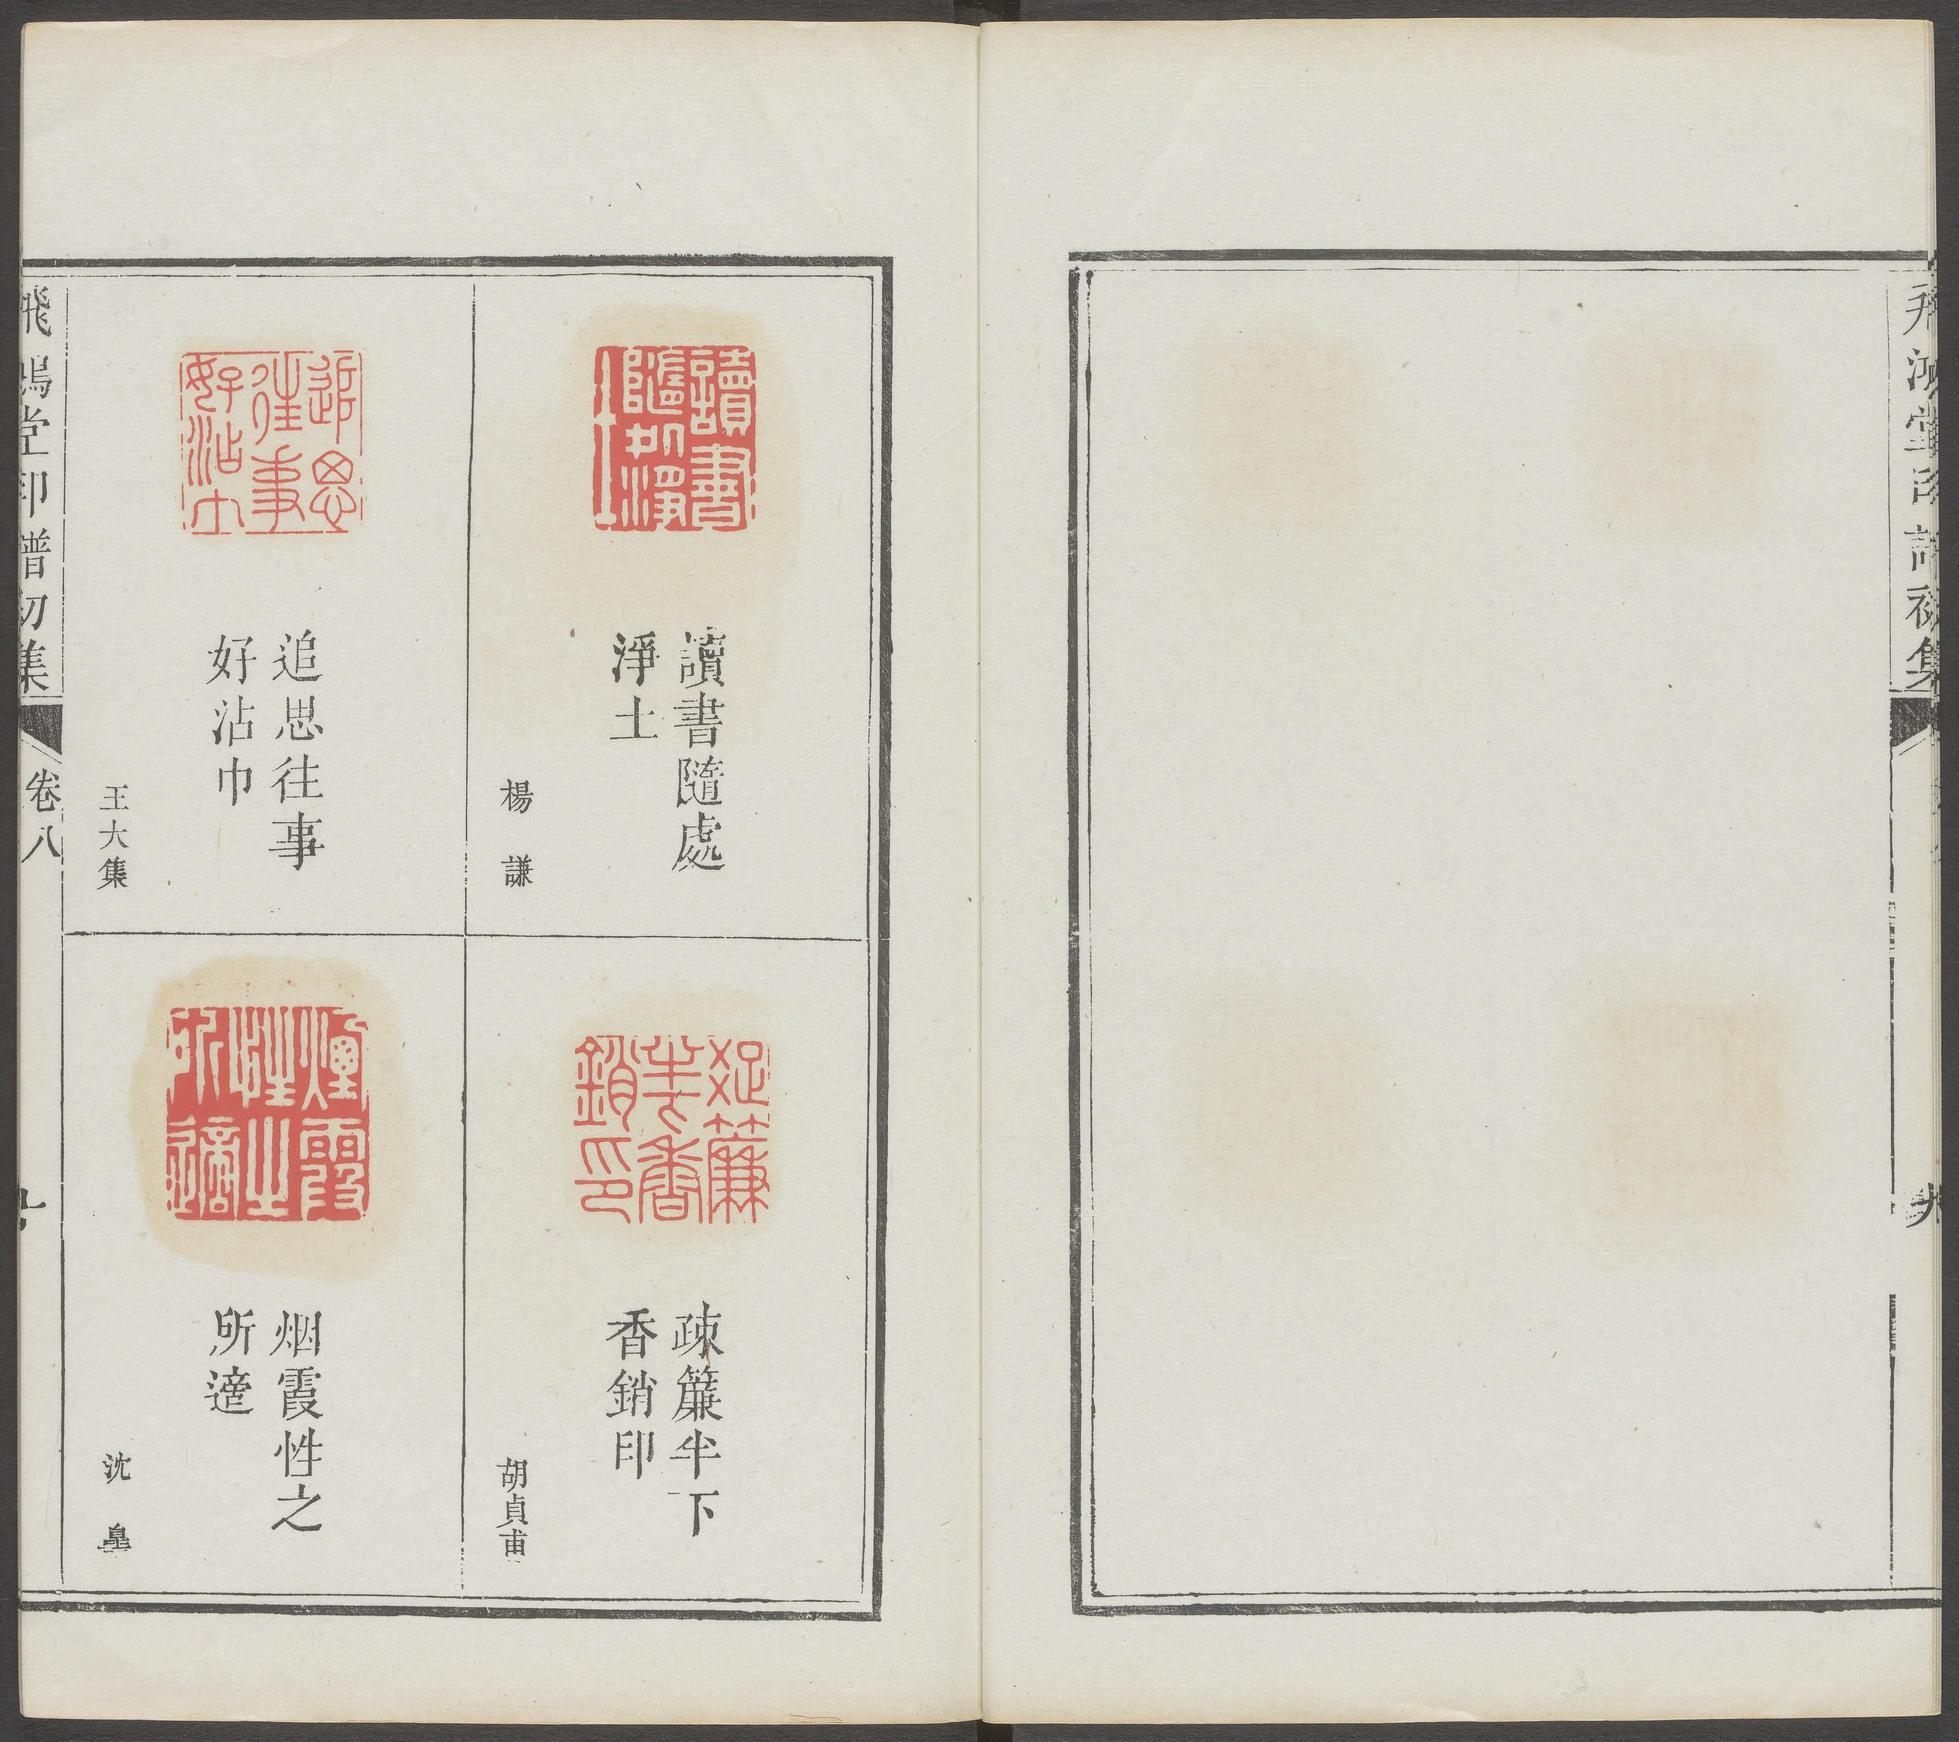 飛鴻堂印譜初集
讀書隨處
淨土
楊謙
疎簾半下
香銷印
胡貞甫
追思往事
好沾巾
王大集
烟霞性之
所適
沈皋
飛鴻堂印譜初集
卷八